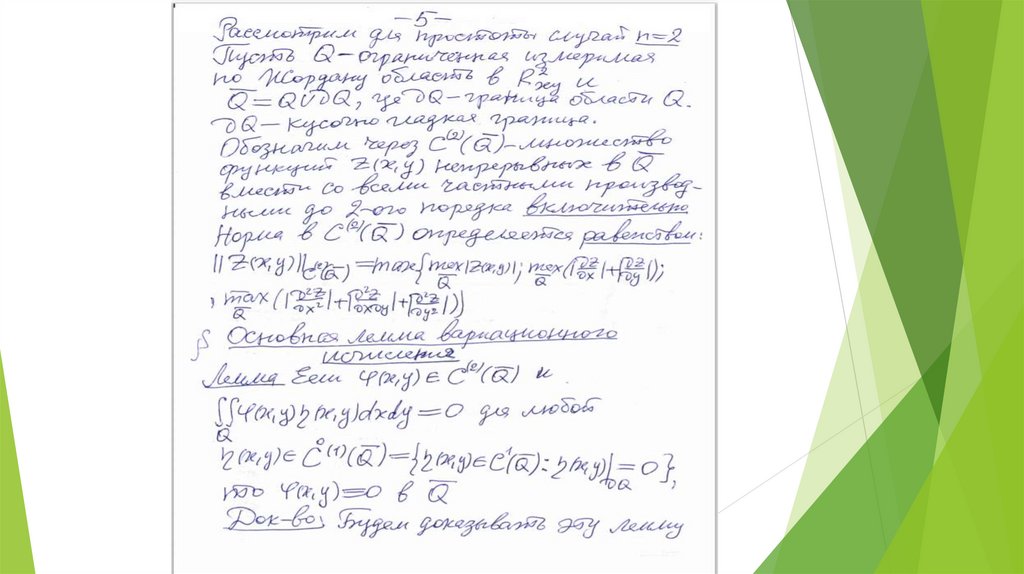 –5–
Рассмотрим для простоты случай n=2
Пусть Q – ограниченная измеримая
по Жордану область в R²xy и
Q̅ = Q∪∂Q, где ∂Q – граница области Q.
∂Q – кусочно гладкая граница.
Обозначим через C⁽²⁾(Q̅) – множество
функций Z(x,y) непрерывных в Q̅
вместе со всеми частными производ-
ными до 2-ого порядка включительно.
Норма в C⁽²⁾(Q̅) определяется равенством:
||Z(x,y)||C⁽²⁾(Q̅) = max{max|Z(x,y)|; max(|∂Z/∂x|+|∂Z/∂y|);
Q̅ Q̅
, max(|∂²Z/∂x²|+|∂²Z/∂x∂y|+|∂²Z/∂y²|)}
Q̅
§ Основная лемма вариационного
исчисления
Лемма Если φ(x,y) ∈ C⁽²⁾(Q̅) и
∫∫φ(x,y)η(x,y)dxdy = 0 для любой
Q
η(x,y) ∈ C̊⁽¹⁾(Q̅) = {η(x,y) ∈ C¹(Q̅): η(x,y)|∂Q = 0},
то φ(x,y) = 0 в Q̅
Док-во: Будем доказывать эту лемму